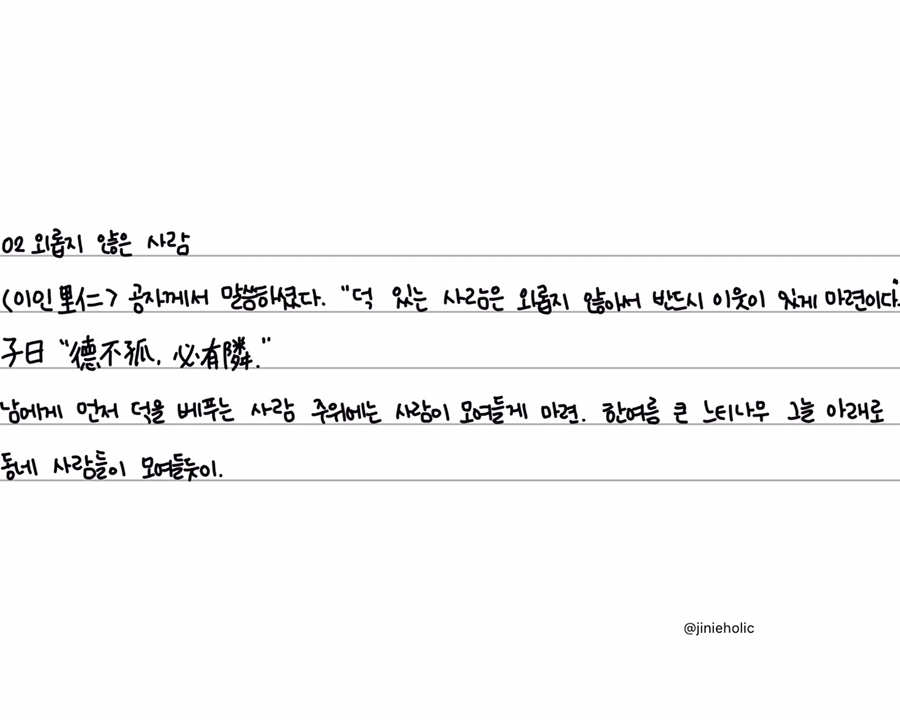 02 외롭지 않은 사람
<이인 里仁> 공자께서 말씀하셨다. "덕 있는 사람은 외롭지 않아서 반드시 이웃이 있게 마련이다."
子曰 "德不孤, 必有隣."
남에게 먼저 덕을 베푸는 사람 주위에는 사람이 모여들게 마련. 한여름 큰 느티나무 그늘 아래로
동네 사람들이 모여들듯이.
@jinieholic